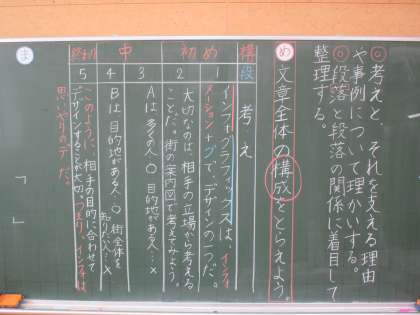 ◎考えと、それを支える理由
や事例について理かいする。
◎段落と段落の関係に着目して
整理する。
め
文章全体の構成をとらえよう。
構
段
考え
初め
1
インフォグラフィックスは、インフォ
メーション+グで、デザインの1つだ。
2
大切なのは、相手の立場から考える
ことだ。街の案内図で考えてみよう。
中
3
Aは多くの人○ 目的地がある人…×
4
Bは目的地がある人…○ 街全体を
知りたい人…×
終わり
5
このように、相手の目的に合わせて
デザインすることが大切。つまり、インフォは
思いやりのデだ。
ま
「
」